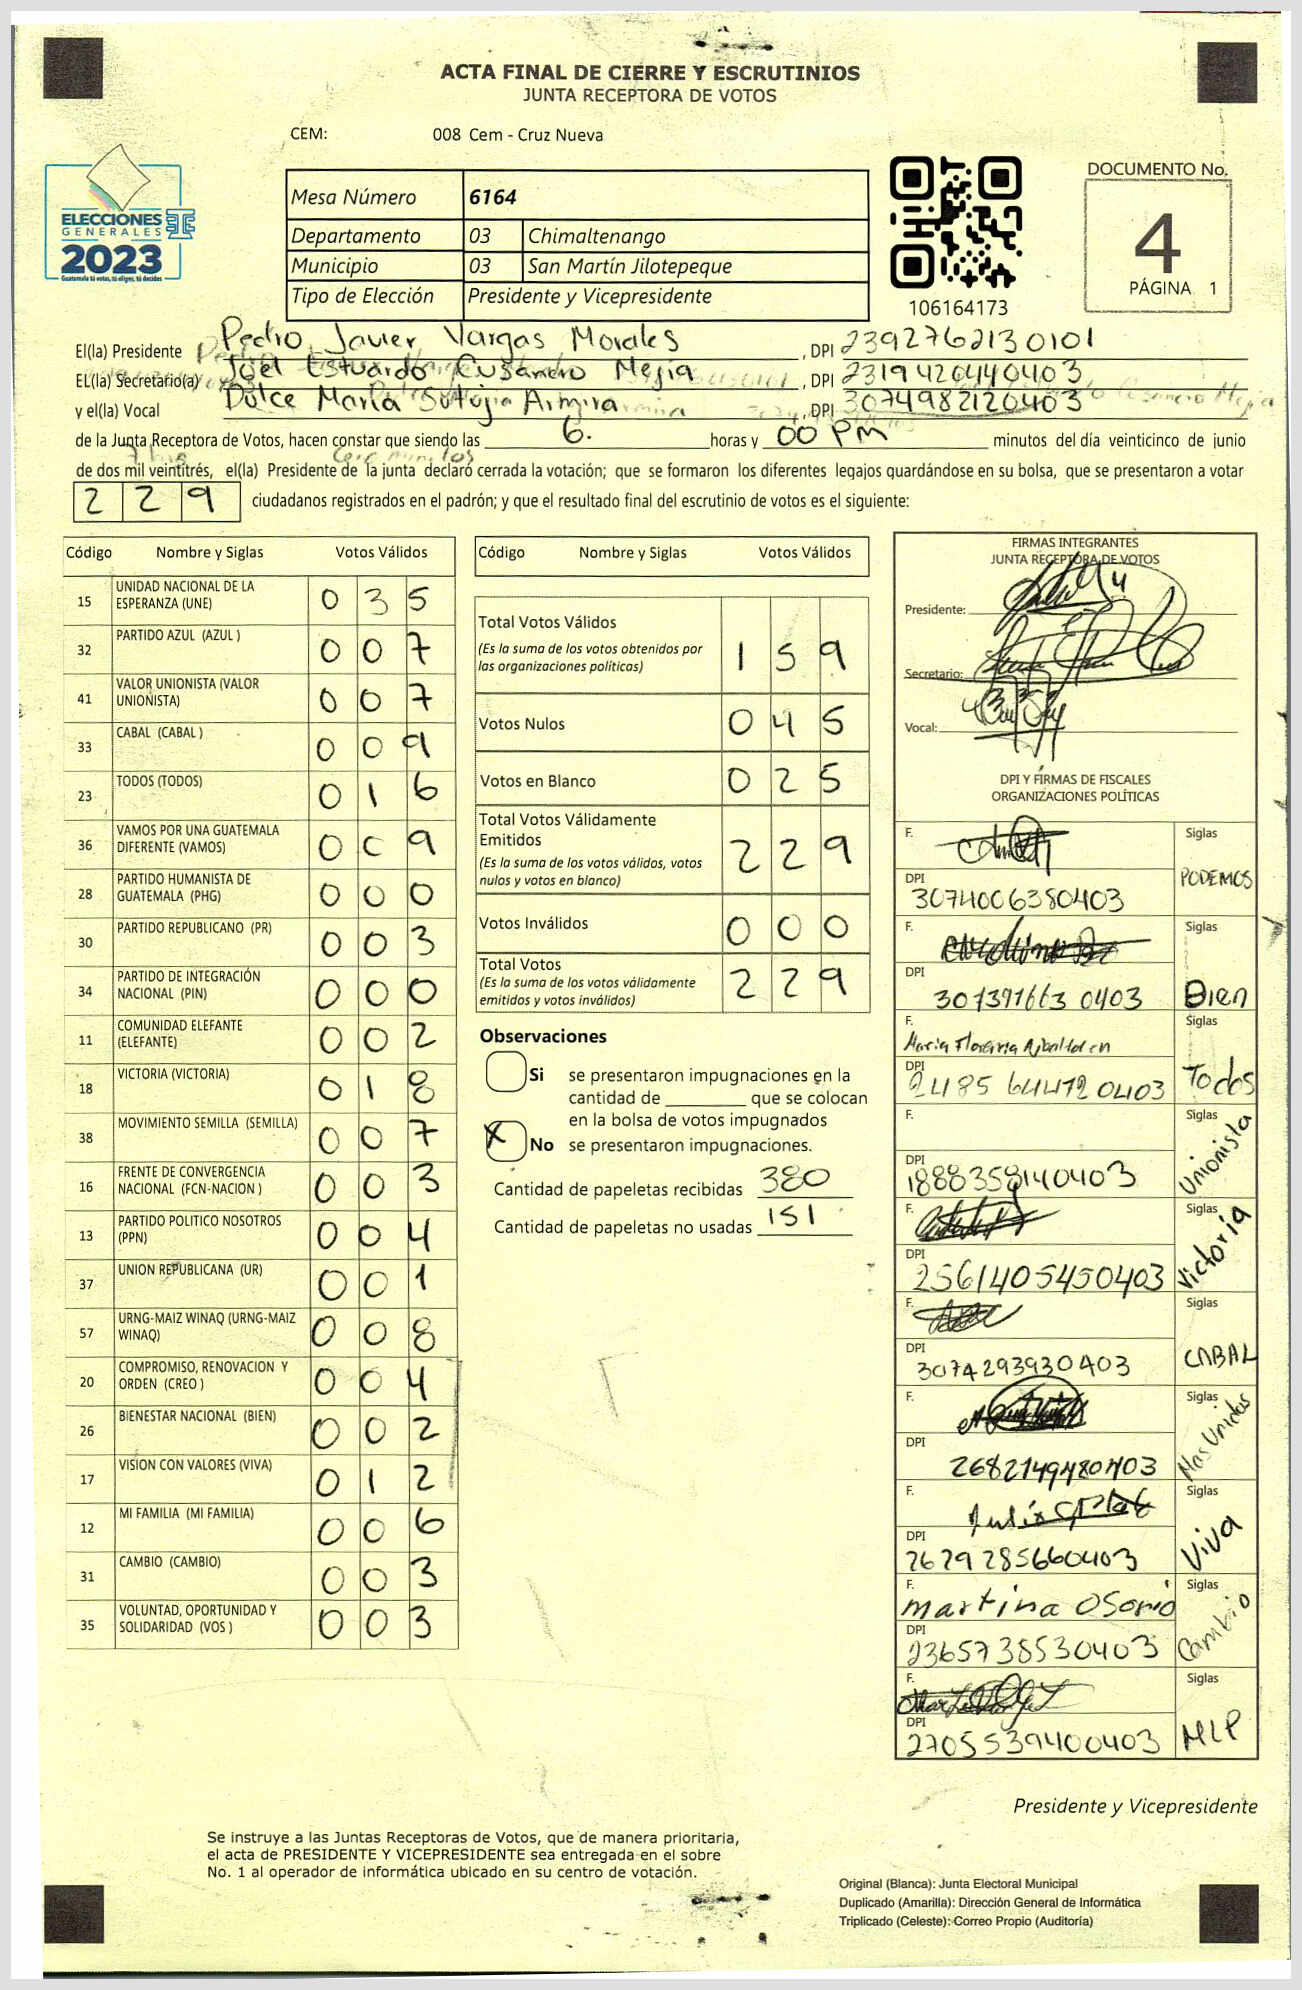 ACTA FINAL DE CIERRE Y ESCRUTINIOS
JUNTA RECEPTORA DE VOTOS
CEM: 008 Cem - Cruz Nueva
ELECCIONES
GENERALES
2023
Guatemala tú votas, tú eliges, tú decides
Mesa Número 6164
Departamento 03 Chimaltenango
Municipio 03 San Martín Jilotepeque
Tipo de Elección Presidente y Vicepresidente
106164173
DOCUMENTO No.
4
PÁGINA 1
El(la) Presidente Pedro Javier Vargas Morales, DPI 2392762130101
EL(la) Secretario(a) Joel Estuardo Cusanero Mejia, DPI 2319420440403
y el(la) Vocal Dulce Maria Sutuja Armira, DPI 3074982120403
de la Junta Receptora de Votos, hacen constar que siendo las 6. horas y 00 PM minutos del día veinticinco de junio
de dos mil veintitrés, el(la) Presidente de la junta declaró cerrada la votación; que se formaron los diferentes legajos quardándose en su bolsa, que se presentaron a votar
229 ciudadanos registrados en el padrón; y que el resultado final del escrutinio de votos es el siguiente:
Código Nombre y Siglas Votos Válidos
15 UNIDAD NACIONAL DE LA ESPERANZA (UNE) 0 3 5
32 PARTIDO AZUL (AZUL ) 0 0 7
41 VALOR UNIONISTA (VALOR UNIONISTA) 0 0 7
33 CABAL (CABAL ) 0 0 9
23 TODOS (TODOS) 0 1 6
36 VAMOS POR UNA GUATEMALA DIFERENTE (VAMOS) 0 0 9
28 PARTIDO HUMANISTA DE GUATEMALA (PHG) 0 0 0
30 PARTIDO REPUBLICANO (PR) 0 0 3
34 PARTIDO DE INTEGRACIÓN NACIONAL (PIN) 0 0 0
11 COMUNIDAD ELEFANTE (ELEFANTE) 0 0 2
18 VICTORIA (VICTORIA) 0 1 8
38 MOVIMIENTO SEMILLA (SEMILLA) 0 0 7
16 FRENTE DE CONVERGENCIA NACIONAL (FCN-NACION ) 0 0 3
13 PARTIDO POLITICO NOSOTROS (PPN) 0 0 4
37 UNION REPUBLICANA (UR) 0 0 1
57 URNG-MAIZ WINAQ (URNG-MAIZ WINAQ) 0 0 8
20 COMPROMISO, RENOVACION Y ORDEN (CREO ) 0 0 4
26 BIENESTAR NACIONAL (BIEN) 0 0 2
17 VISION CON VALORES (VIVA) 0 1 2
12 MI FAMILIA (MI FAMILIA) 0 0 6
31 CAMBIO (CAMBIO) 0 0 3
35 VOLUNTAD, OPORTUNIDAD Y SOLIDARIDAD (VOS ) 0 0 3
Código Nombre y Siglas Votos Válidos
Total Votos Válidos
(Es la suma de los votos obtenidos por
las organizaciones políticas) 1 5 9
Votos Nulos 0 4 5
Votos en Blanco 0 2 5
Total Votos Válidamente
Emitidos
(Es la suma de los votos válidos, votos
nulos y votos en blanco) 2 2 9
Votos Inválidos 0 0 0
Total Votos
(Es la suma de los votos válidamente
emitidos y votos inválidos) 2 2 9
Observaciones
Si se presentaron impugnaciones en la
cantidad de ________ que se colocan
en la bolsa de votos impugnados
X No se presentaron impugnaciones.
Cantidad de papeletas recibidas 380
Cantidad de papeletas no usadas 151
FIRMAS INTEGRANTES
JUNTA RECEPTORA DE VOTOS
Presidente:
Secretario:
Vocal:
DPI Y FIRMAS DE FISCALES
ORGANIZACIONES POLÍTICAS
F. Siglas
DPI 3074006380403 PODEMOS
F. Siglas
DPI Bien
F. Maria Siglas
DPI 2485 64472 0403 Todos
F. Siglas
DPI 1888358140403 Unionista
F. Siglas
DPI 2561405450403 Victoria
F. Siglas
DPI 3074293930403 CABAL
F. Siglas
DPI 2682149480403 Mas Unidos
F. Siglas
DPI 2629285660403 Viva
F. Martina Osorio Siglas
DPI 2365738530403 Cambio
F. Siglas
DPI 2705539400403 MLP
Presidente y Vicepresidente
Se instruye a las Juntas Receptoras de Votos, que de manera prioritaria,
el acta de PRESIDENTE Y VICEPRESIDENTE sea entregada en el sobre
No. 1 al operador de informática ubicado en su centro de votación.
Original (Blanca): Junta Electoral Municipal
Duplicado (Amarilla): Dirección General de Informática
Triplicado (Celeste): Correo Propio (Auditoría)